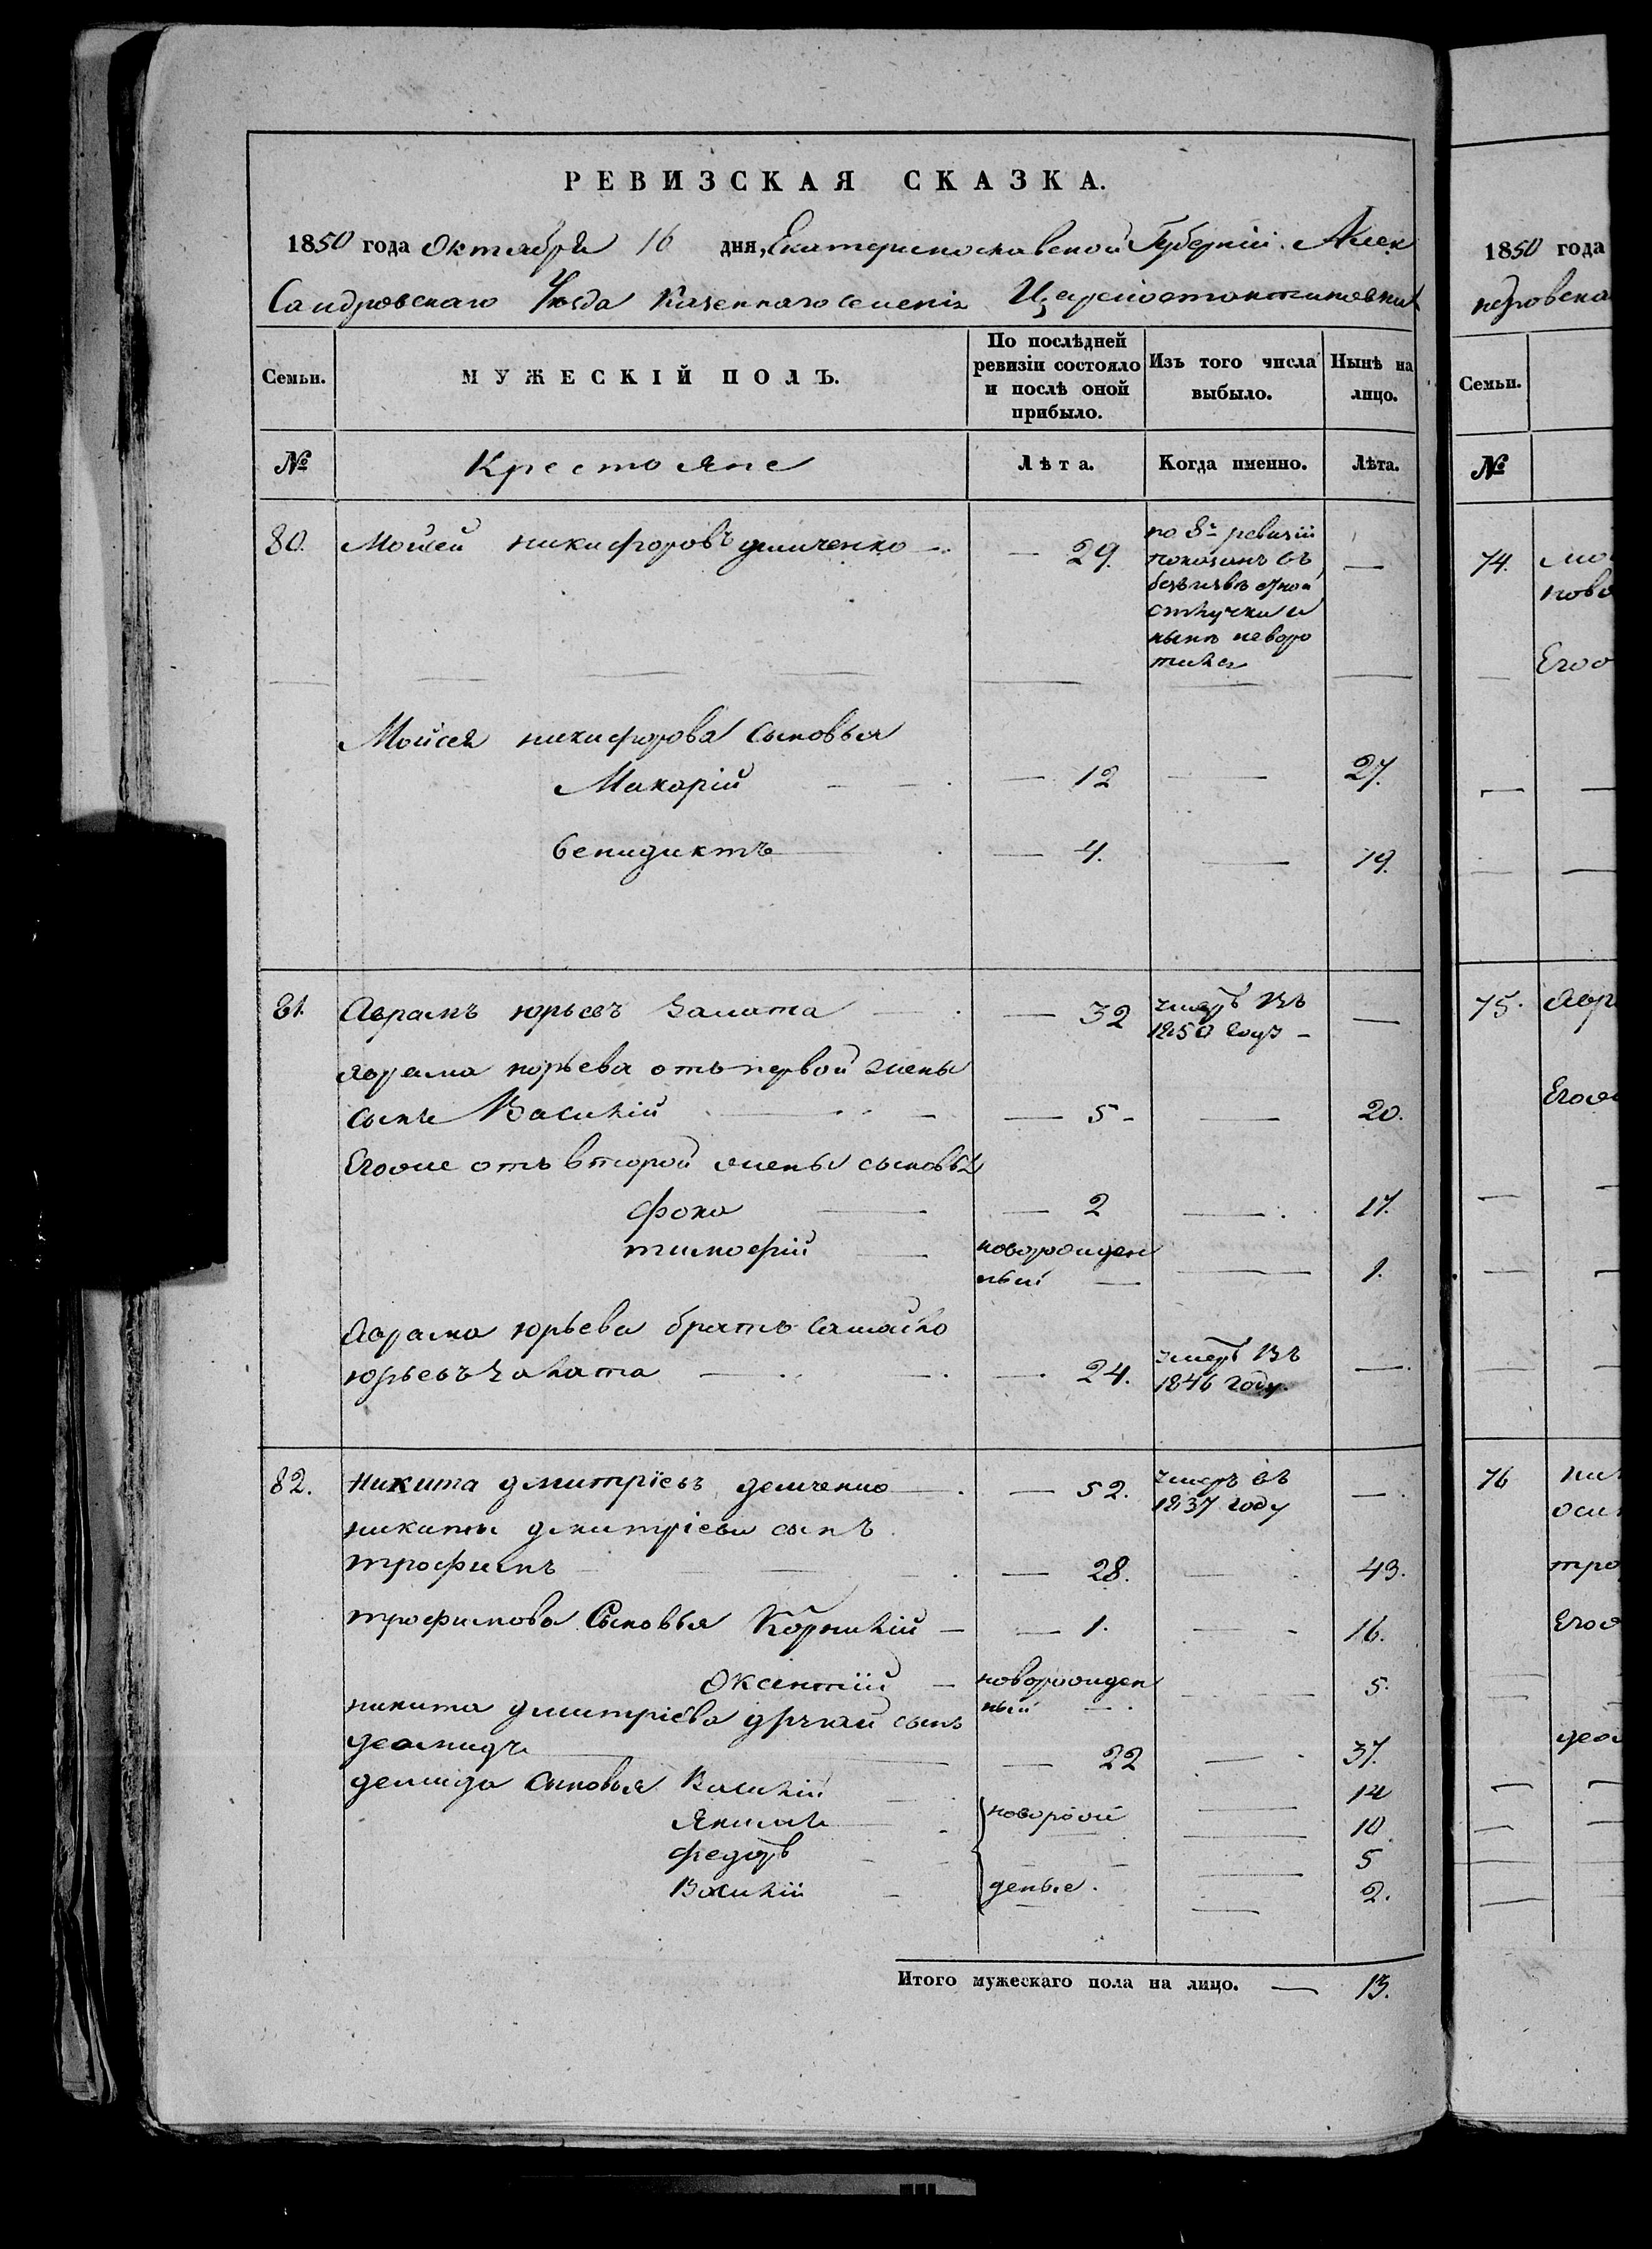 РЕВИЗСКАЯ СКАЗКА.
1850 года Октября 16 дня, Екатеринославской Губерніи Алек
сандровскаго Уѣзда Казеннаго селенія Цареконстантиновки
Семьи.
МУЖЕСКІЙ ПОЛЪ.
По послѣдней
ревизіи состояло
и послѣ оной
прибыло.
Изъ того числа
выбыло.
Нынѣ на
лицо.
№
Крестояне
Лѣта.
Когда именно.
Лѣта.
80. Мойсей никифоровъ демченко — 29. по 8й ревизіи —
показанъ въ
безъизвѣстной
отлучки и
нынѣ неворо
тился
Мойсея никифорова сыновья
Макарій — 12 — 27.
бенидиктъ — 4. — 19.
81. Аврамъ юрьевъ Залата — 32 умеръ въ —
1850 году
Аврама юрьева отъ первой жены
сынъ Василій — 5 — 20.
Егоже отъ второй жены сыновья
фока — 2 — 17.
тимофій новорожден
ный — 1.
Аврама юрьева братъ самойло
юрьевъ залата — 24. умеръ въ —
1846 году.
82. никита дмитріевъ демченко — 52. умеръ въ —
1837 году
никиты дмитріева сынъ
трофимъ — 28. — 43.
трофимова Сыновья Корнилій — 1. — 16.
Оксентій — новорожден — 5.
ный
никита дмитріева другой сынъ
деомидъ — 22 — 37.
демида сыновья Василій — 14
Якимъ новорож — 10.
федоръ — 5
Василій деные. — 2.
Итого мужескаго пола на лицо. — 13.
1850 года
Семьи.
№
74.
ново
75. Авра
76
тро